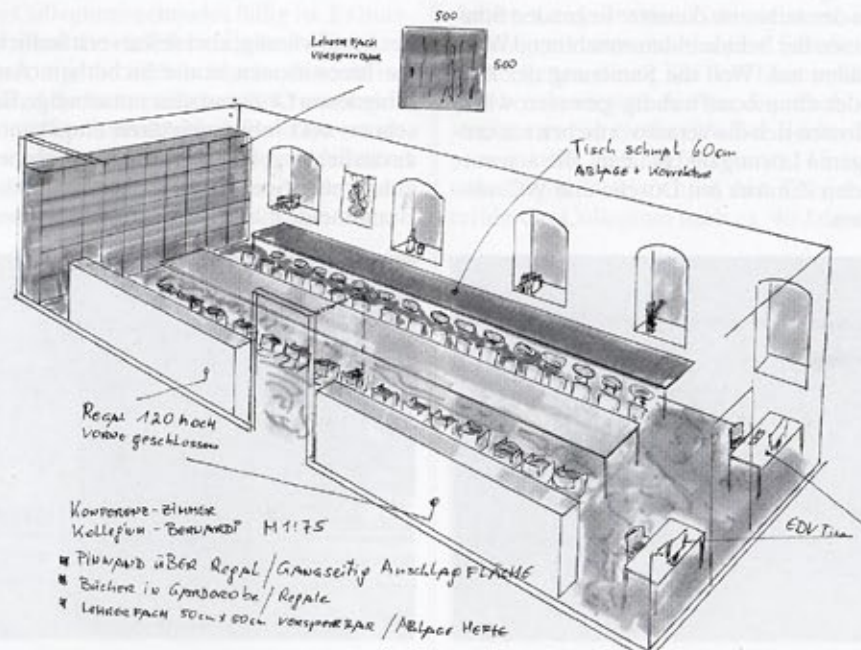 500
Lehrerfach
Versperrbar
500
Tisch schmal 60cm
Ablage + Korrektur
Regal 120 hoch
vorne geschlossen
Konferenz-Zimmer
Kollegium-Bernardi M 1:75
Pinnwand über Regal / Gangseitig Anschlagfläche
Bücher in Garderobe / Regale
Lehrerfach 50cm x 50cm versperrbar / Ablage Hefte
EDV